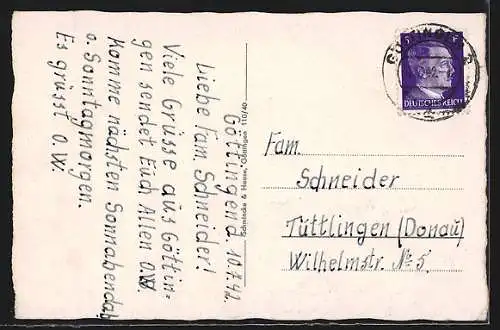 Göttingen d. 10.7.42.
Liebe Fam. Schneider!
Viele Grüsse aus Göttin=
gen sendet Euch Allen O.W.
Komme nächsten Sonnabend
o. Sonntagmorgen.
Es grüsst O.W.
Schmincke & Heese, Göttingen 110/40
DEUTSCHES REICH
Fam.
Schneider
Tüttlingen (Donau)
Wilhelmstr. № 5.